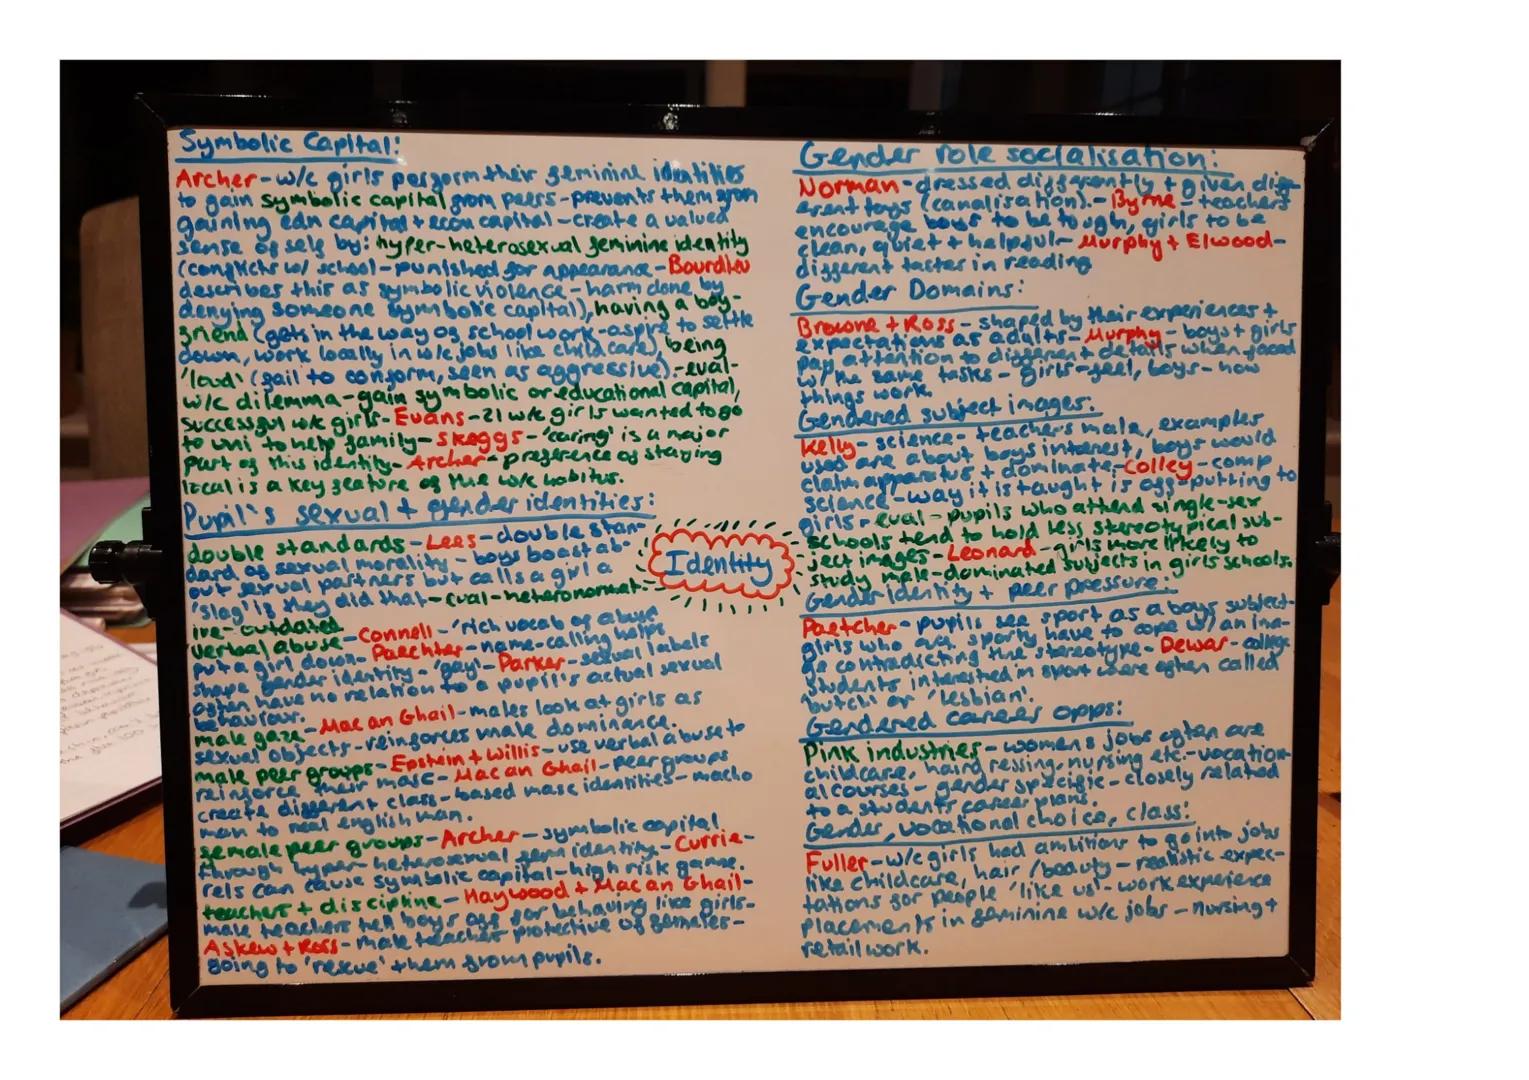 Symbolic Capital:
Archer - w/c girls perform their feminine identities
to gain symbolic capital from peers - prevents them from
gaining edn capital + econ capital - create a valued
sense of self by: hyper-heterosexual feminine identity
(conflicts w/ school - punished for appearance - Bourdieu
describes this as symbolic violence - harm done by
denying someone symbolic capital), having a boy-
friend (gets in the way of school work - aspire to settle
down, work locally in w/c jobs like childcare), being
'loud' (fail to conform, seen as aggressive). - eval -
w/c dilemma - gain symbolic or educational capital,
successful w/c girls - Evans - 21 w/c girls wanted to go
to uni to help family - Skeggs - 'caring' is a major
part of this identity - Archer - preference of staying
local is a key feature of the w/c habitus.
Pupil's sexual + gender identities:
double standards - Lees - double stan-
dard of sexual morality - boys boast ab-
out sexual partners but calls a girl a
'slag' if they did that - eval - heteronormat-
ive - outdated
verbal abuse - Connell - 'rich vocab of abuse'
put a girl down - Paechter - name-calling helps
shape gender identity - 'gay' - Parker - sexual labels
often have no relation to a pupil's actual sexual
behaviour.
male gaze - Mac an Ghail - males look at girls as
sexual objects - reinforces male dominance.
male peer groups - Epstein + Willis - use verbal abuse to
reinforce their masc - Mac an Ghail - peer groups
create different class-based masc identities - macho
man to real english man.
female peer groups - Archer - symbolic capital
through hyper-heterosexual fem identity - Currie -
rels can cause symbolic capital - high risk game.
teachers + discipline - Haywood + Mac an Ghail -
male teachers tell boys off for behaving like girls -
Askew + Ross - male teacher protective of females -
going to 'rescue' them from pupils.
Identity
Gender role socialisation:
Norman - dressed differently + given diff-
erent toys (canalisation). - Byrne - teachers
encourage boys to be tough, girls to be
clean, quiet + helpful - Murphy + Elwood -
different tastes in reading
Gender Domains:
Browne + Ross - shaped by their experiences +
expectations as adults - Murphy - boys + girls
pay attention to different details when faced
w/ the same tasks - girls - feel, boys - how
things work.
Gendered subject images:
Kelly - science - teachers male, examples
used are about boys interest, boys would
claim apparatus + dominate - Colley - comp
science - way it is taught is off-putting to
girls - eval - pupils who attend single-sex
schools tend to hold less stereotypical sub-
ject images - Leonard - girls more likely to
study male-dominated subjects in girls schools.
Gender identity + peer pressure:
Paetcher - pupils see sport as a boys subject -
girls who are sporty have to cope w/ an ima-
ge contradicting the stereotype - Dewar - college
students interested in sport were often called
'butch' or 'lesbian'.
Gendered career opps:
Pink industries - womens jobs often are
childcare, hairdressing, nursing etc. - vocation-
al courses - gender specific - closely related
to a students career plans.
Gender, vocational choice, class:
Fuller - w/c girls had ambitions to go into jobs
like childcare, hair/beauty - realistic expec-
tations for people 'like us' - work experience
placements in feminine w/c jobs - nursing +
retail work.